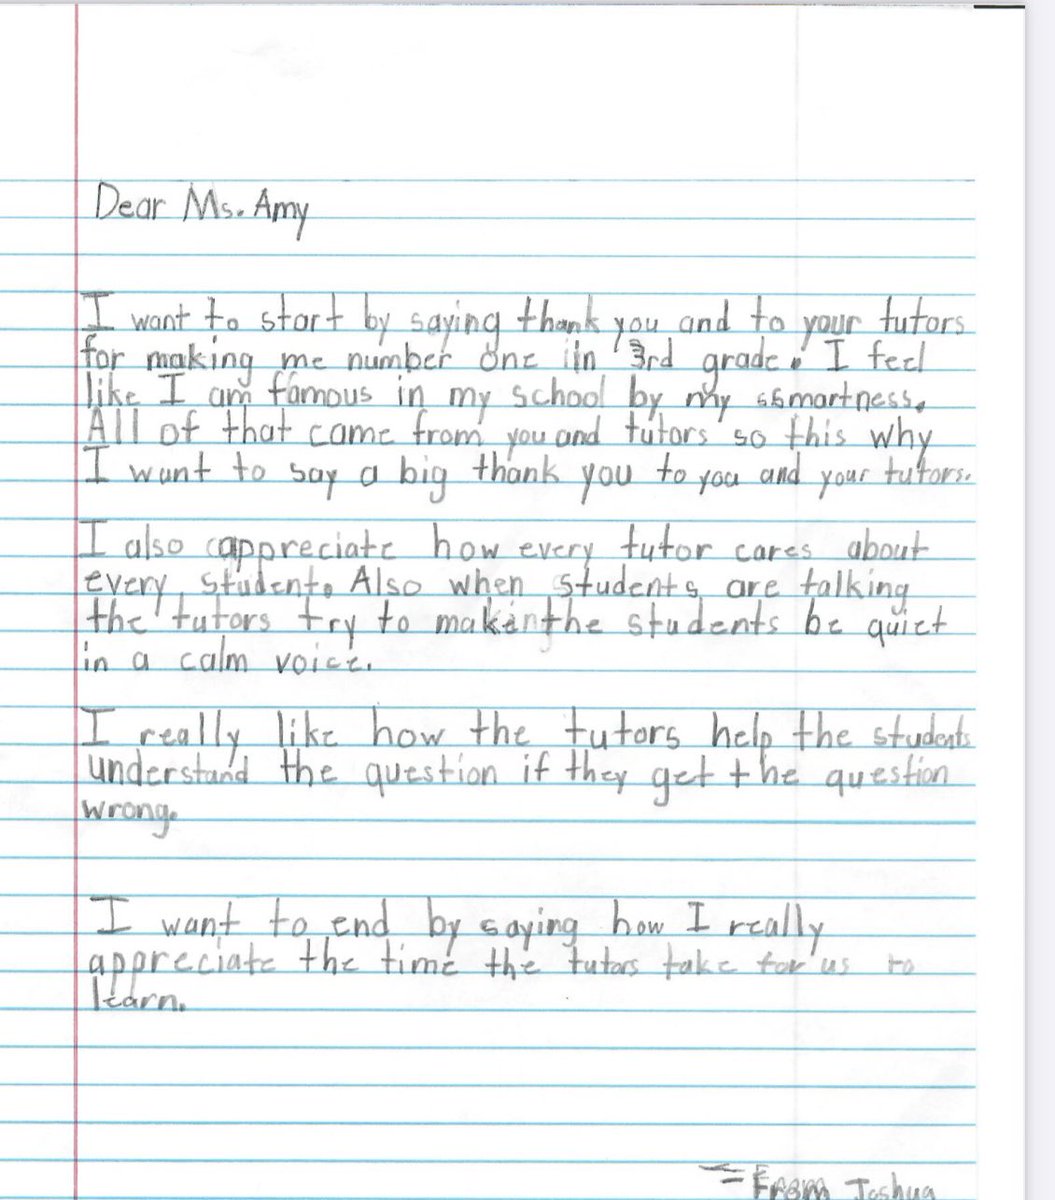 Dear Ms. Amy
I want to start by saying thank you and to your tutors
for making me number one in 3rd grade. I feel
like I am famous in my school by my ssmartness.
All of that came from you and tutors so this why
I want to say a big thank you to you and your tutors.
I also appreciate how every tutor cares about
every student. Also when students are talking
the tutors try to make the students be quiet
in a calm voice.
I really like how the tutors help the students
understand the question if they get the question
wrong.
I want to end by saying how I really
appreciate the time the tutors take for us to
learn.
- From Joshua